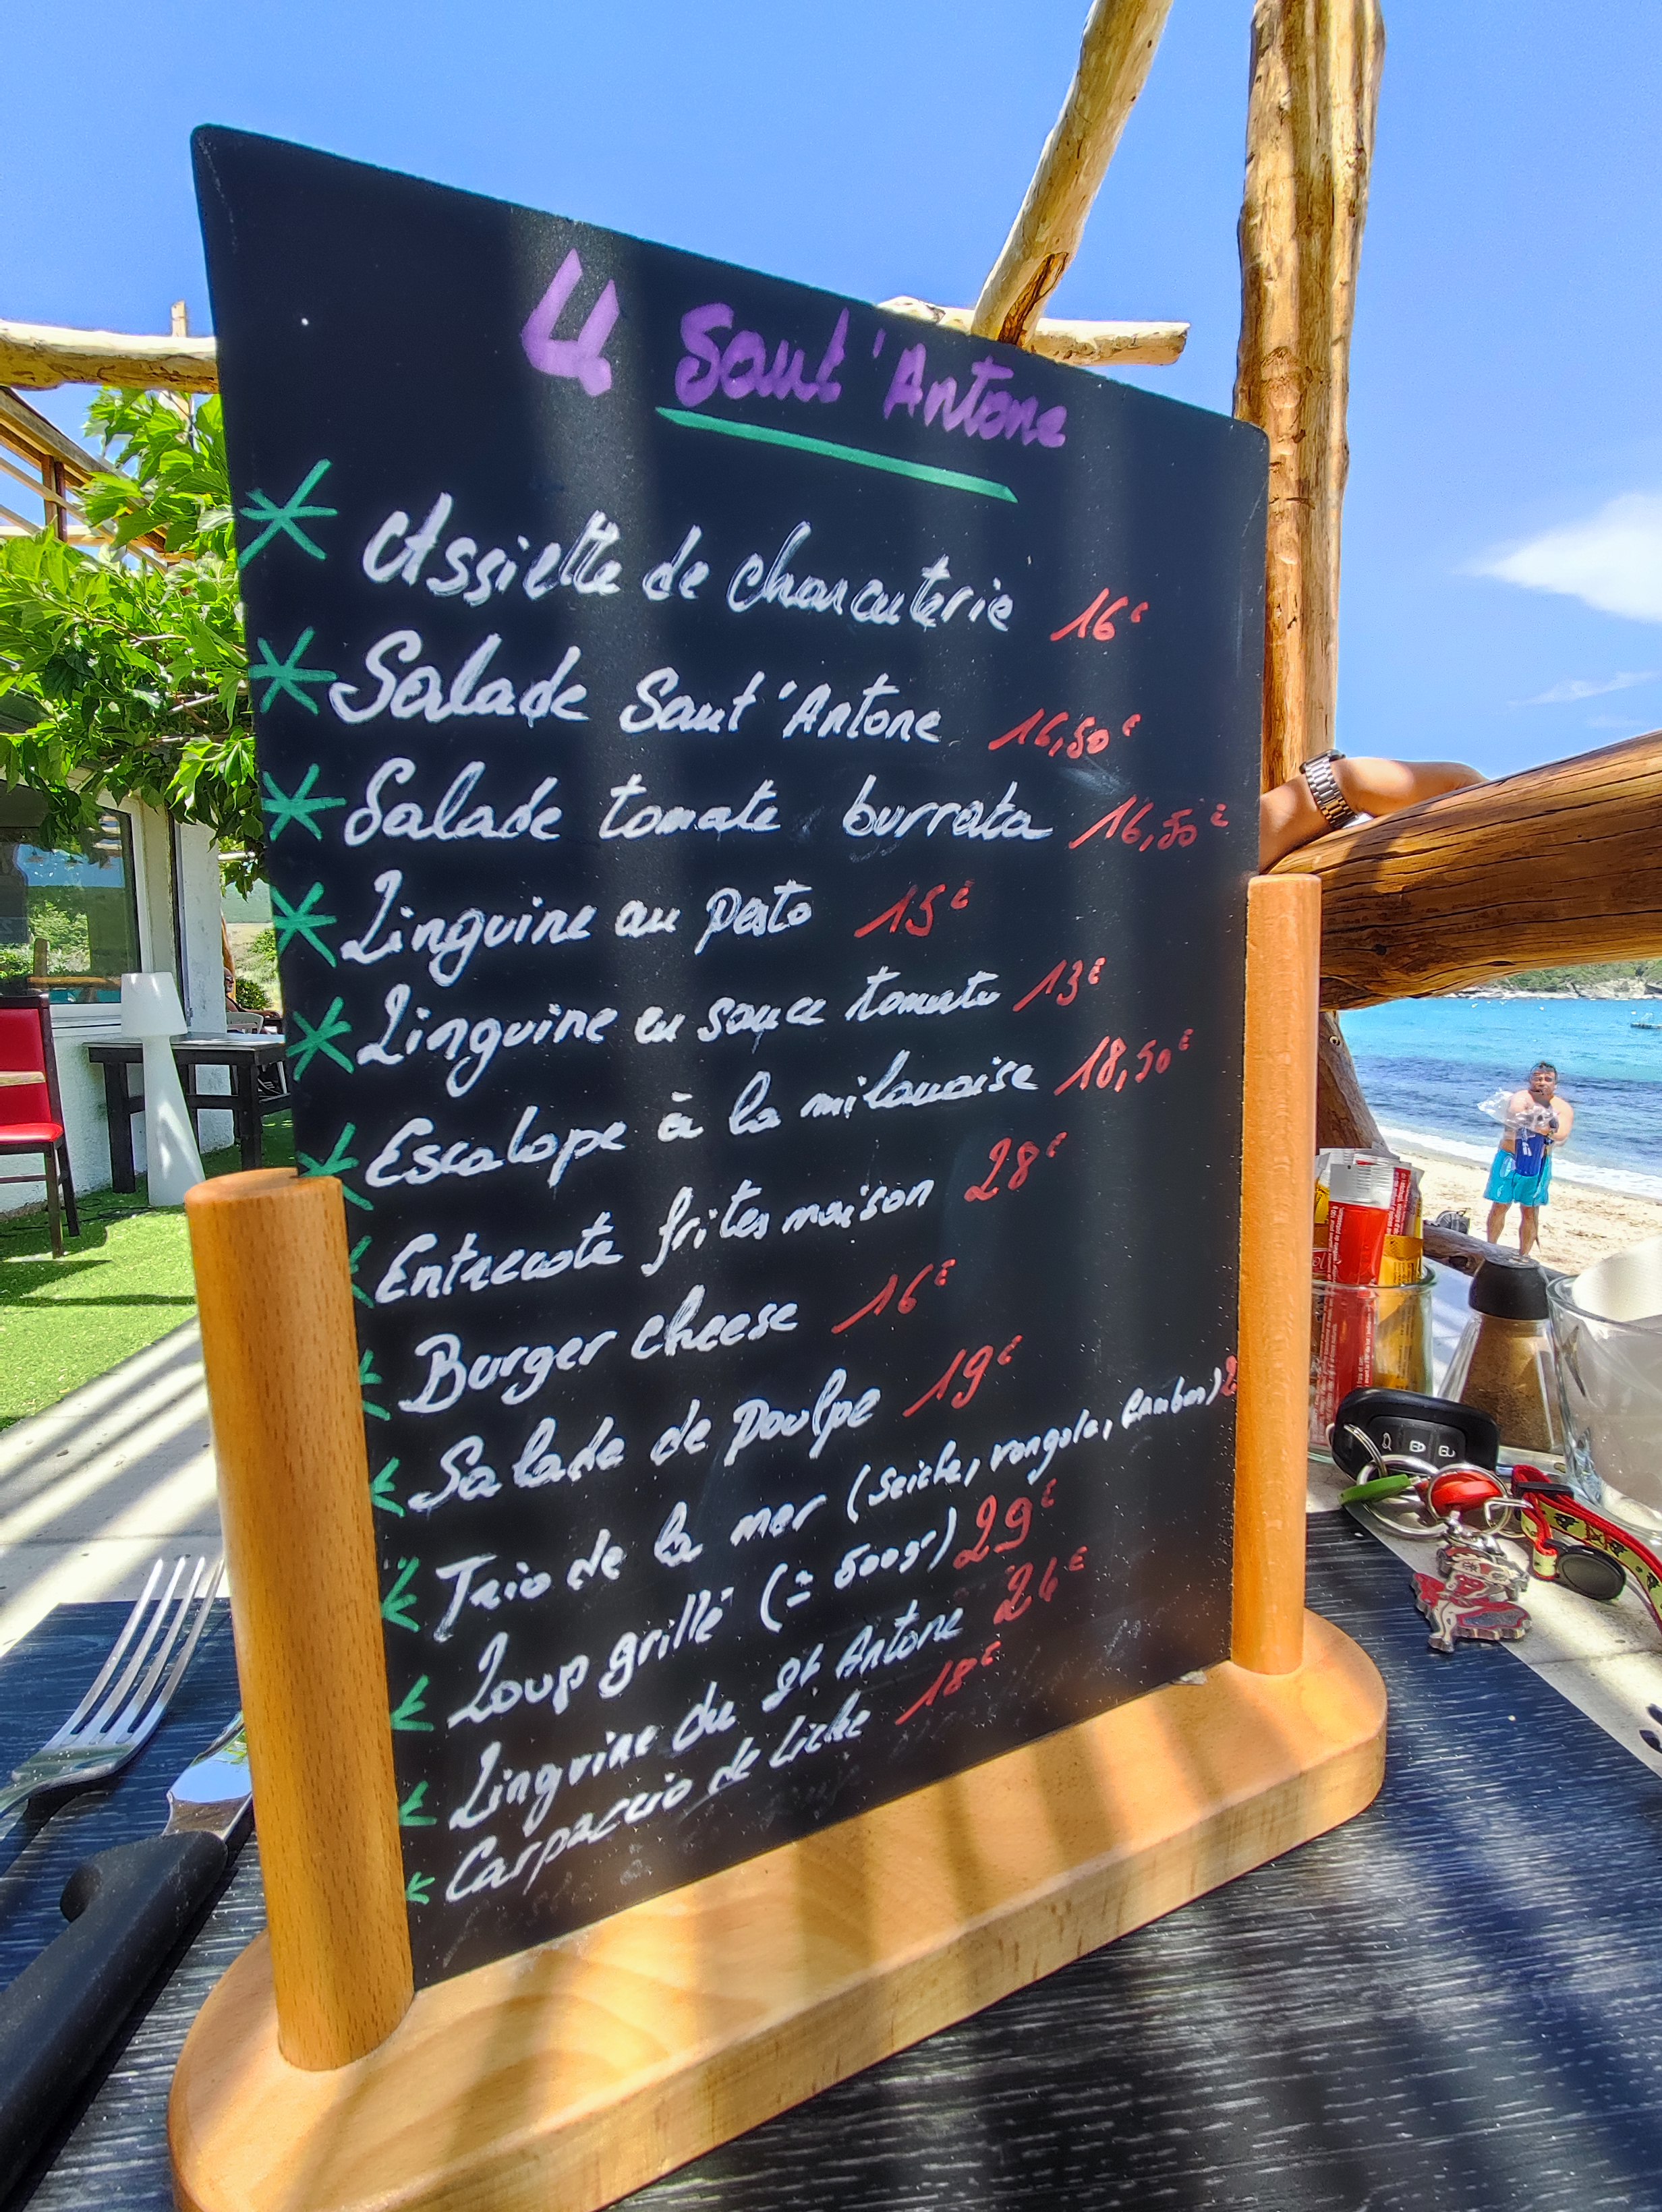 U Sant'Antone
Assiette de charcuterie 16€
Salade Sant'Antone 16,50€
Salade tomate burrata 16,50€
Linguine au pesto 15€
Linguine en sauce tomate 13€
Escalope à la milanaise 18,50€
Entrecote frites maison 28€
Burger cheese 16€
Salade de poulpe 19€
Trio de la mer (seiche, vongole, gambas) 2
Loup grillé (= 500gr) 29€
Linguine du St. Antone 26€
Carpaccio de Liche 18€